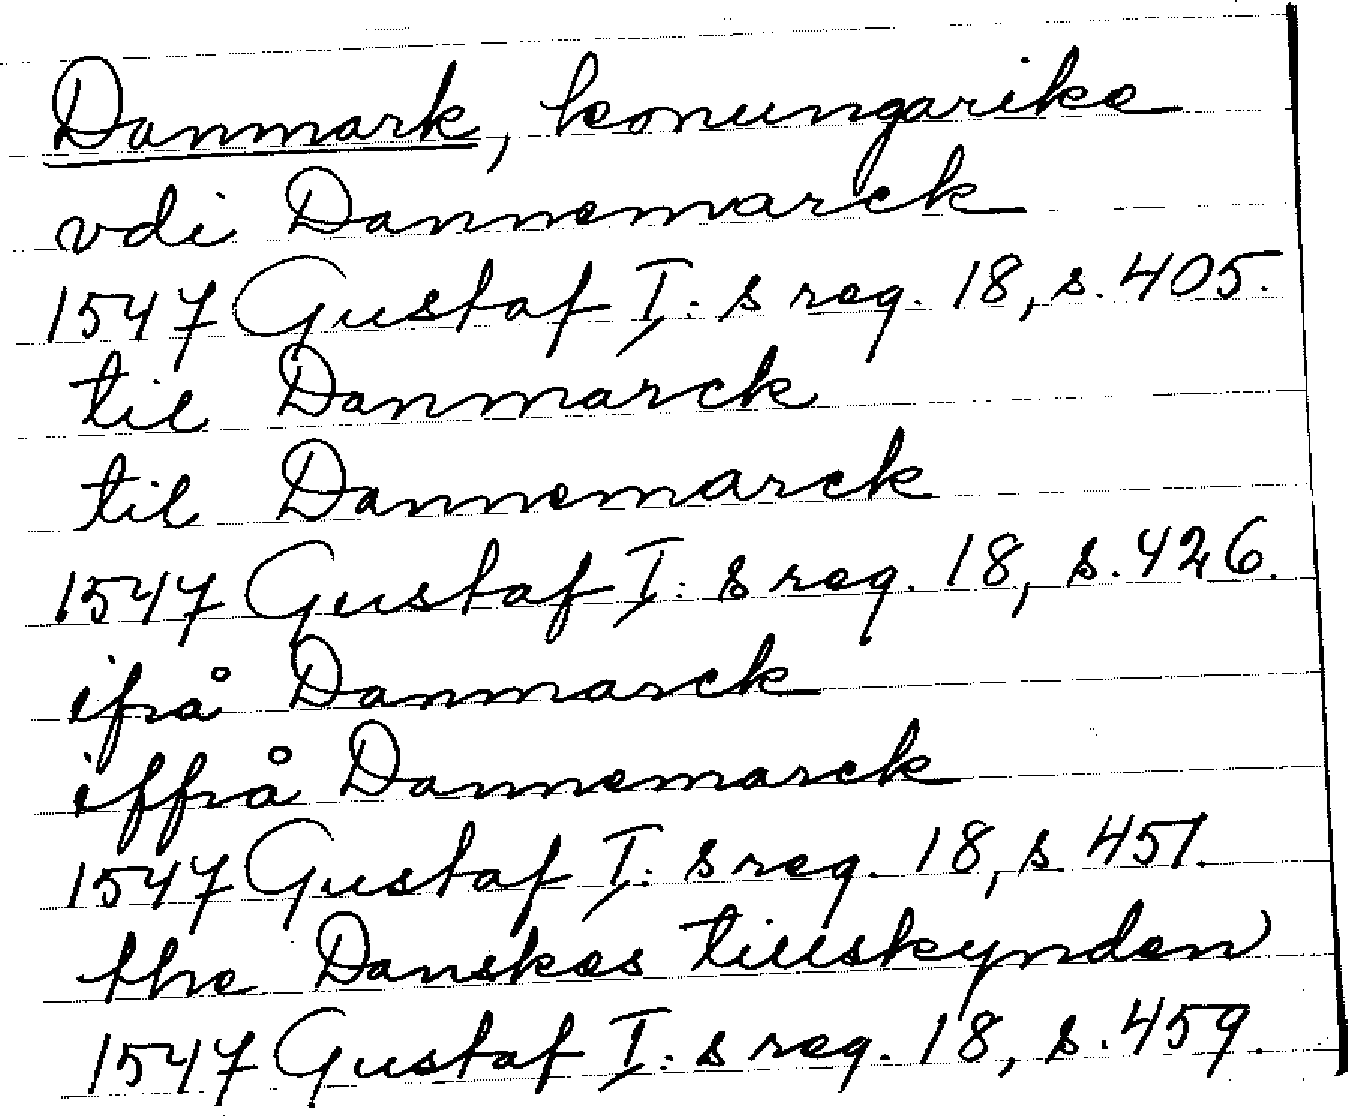 Danmark, konungarike
vdi Dannemarck
1547 Gustaf I:s reg. 18, s. 405.
til Danmarck
til Dannemarck
1547 Gustaf I:s reg. 18, s. 426.
ifrå Danmarck
iffrå Dannemarck
1547 Gustaf I:s reg. 18, s 451.
the Danskes tillskynden
1547 Gustaf I:s reg. 18, s. 459.